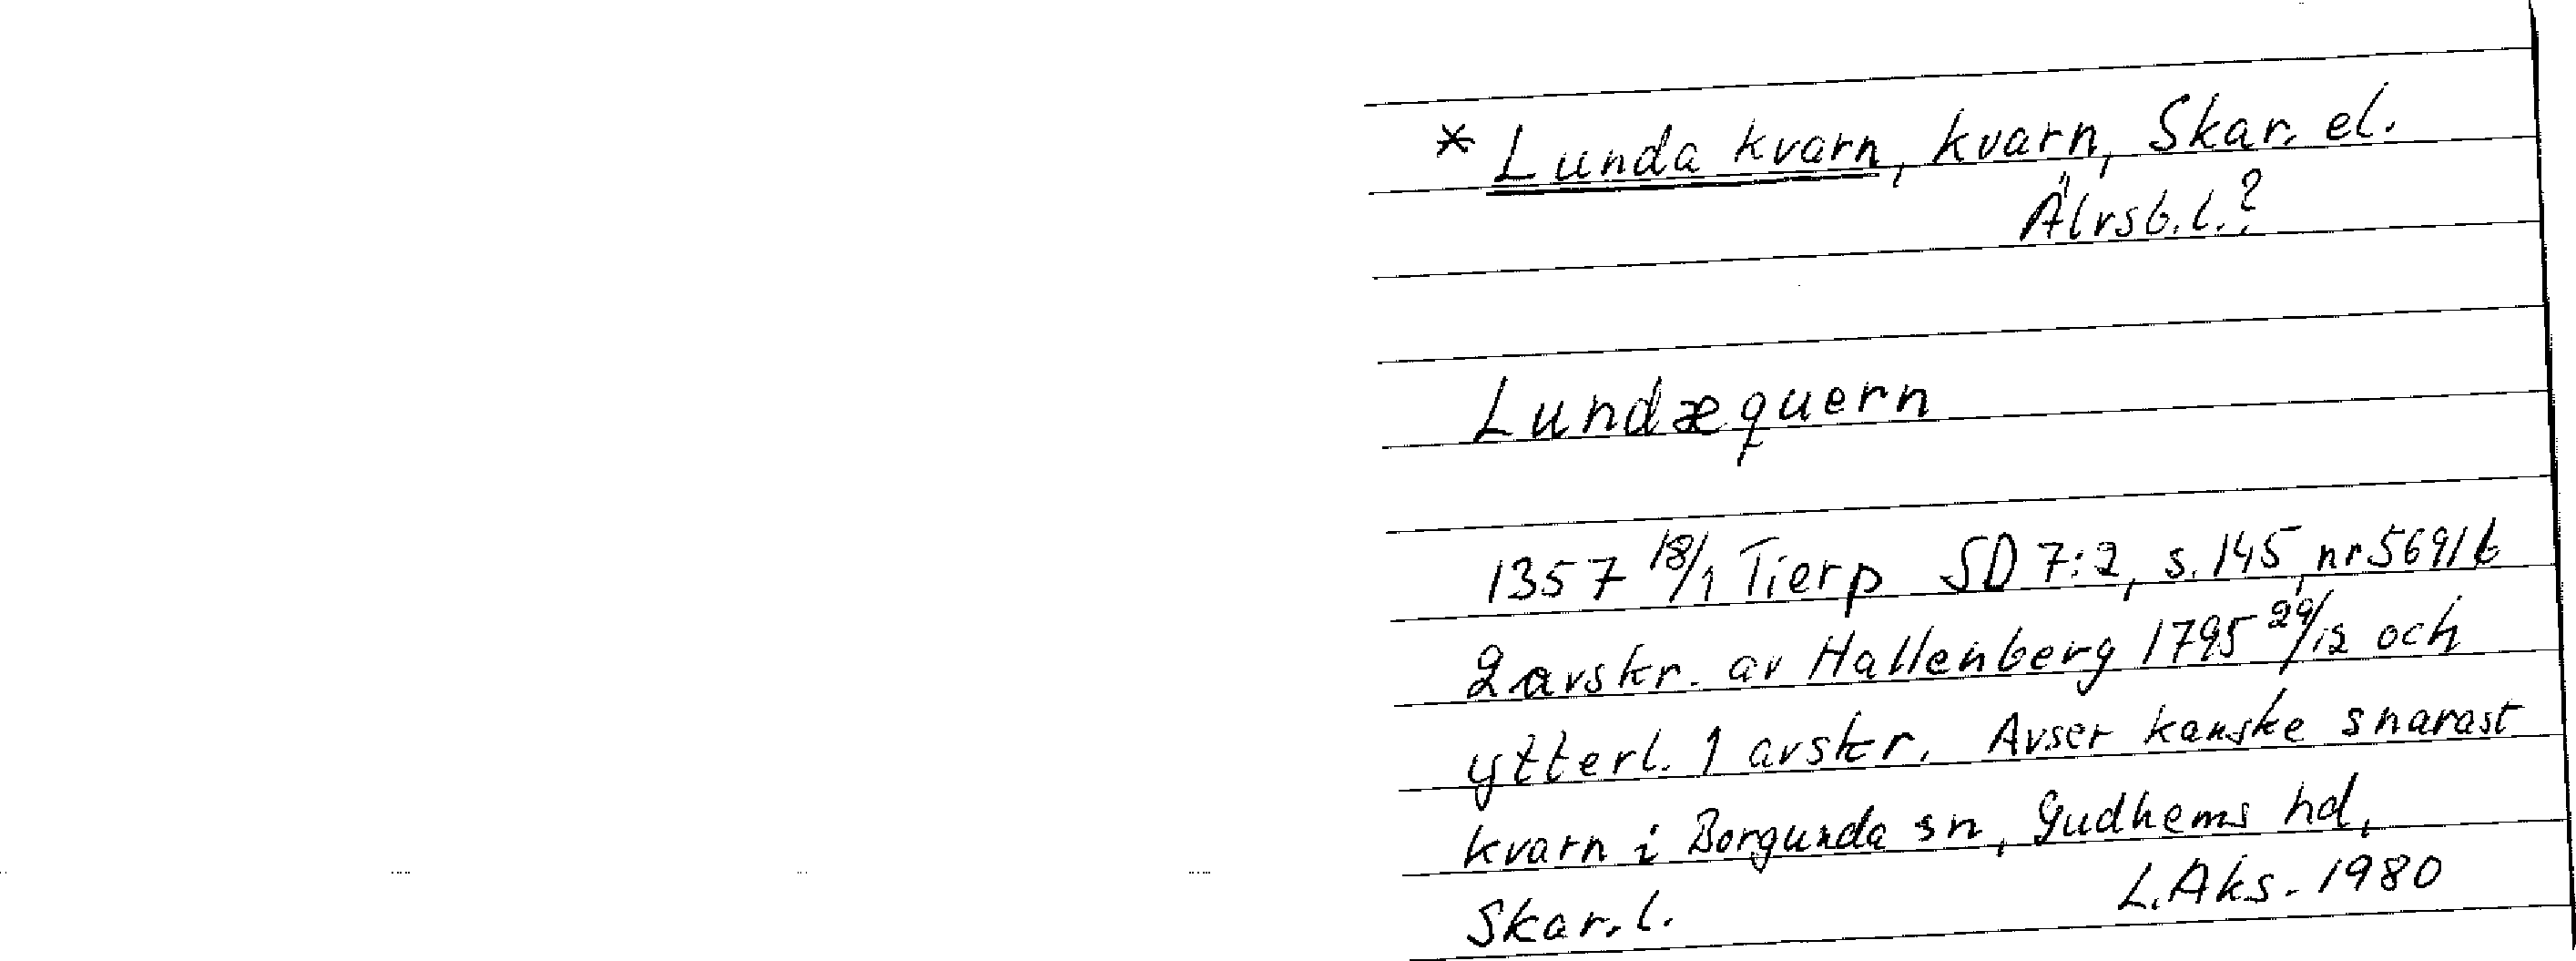 * Lunda kvarn, kvarn, Skar. el.
Älvsb.l.?
Lundæquern
1357 18/1 Tierp SD 7:2, s. 145, nr 5691 b
2 avskr. av Hallenberg 1795 29/12 och
ytterl. 1 avskr. Avser kanske snarast
kvarn i Borgunda sn, Gudhems hd,
Skar. l. L. Aks. 1980